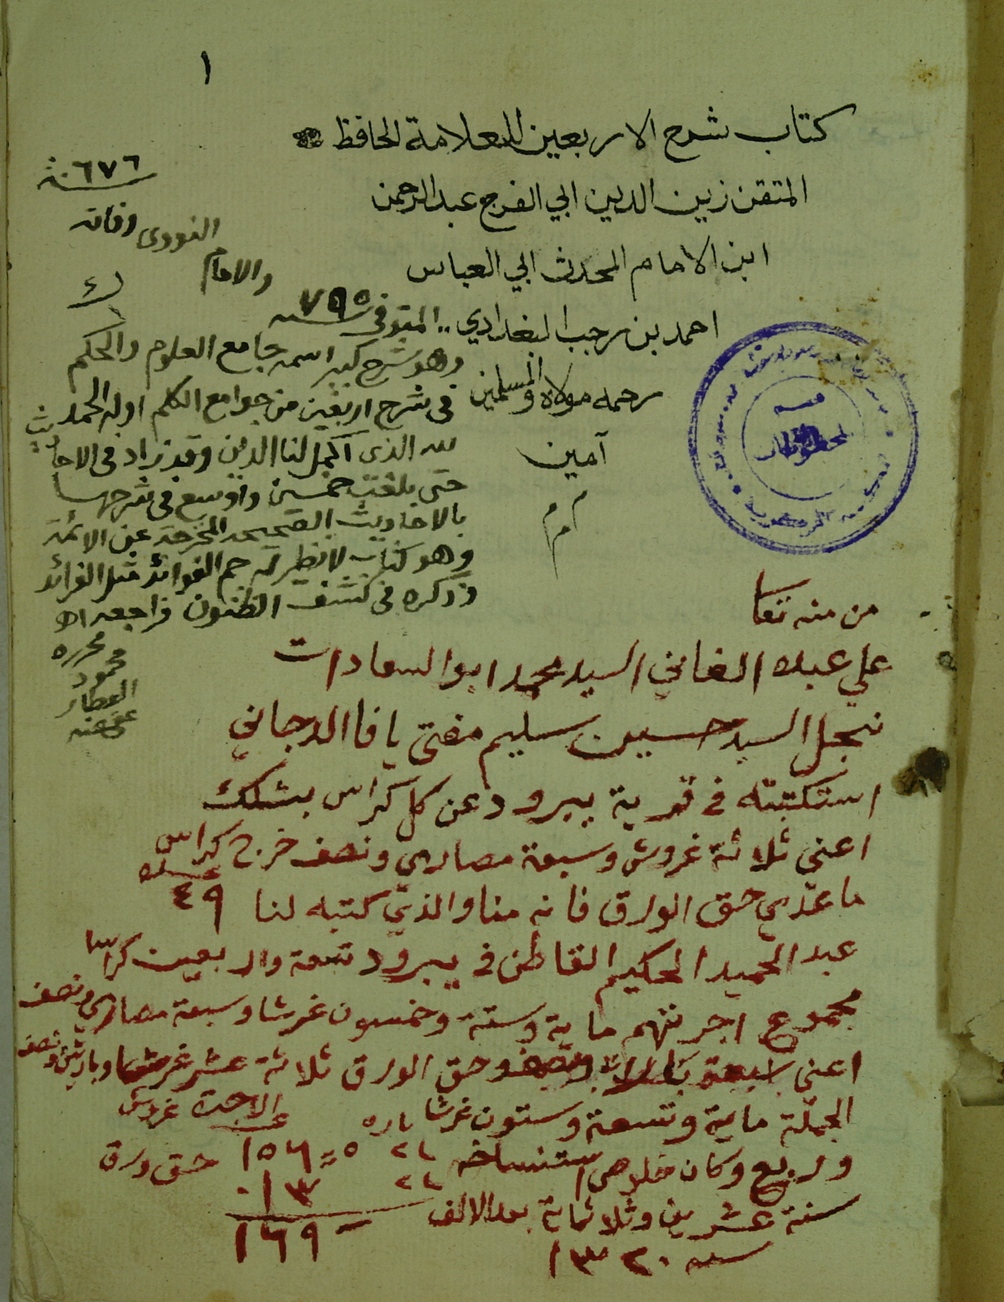 ١
كتاب شرح الاربعين للعلامة الحافظ
المتقن زين الدين ابي الفرج عبد الرحمن
ابن الامام المحدث ابي العباس
احمد بن رجب البغدادي .. المتوفى سنة ٧٩٥
رحمه مولاه والمسلمين
آمين
م م
والامام
النووى وفاته
سنة ٦٧٦
وهو شرح كبير اسمه جامع العلوم والحكم
فى شرح اربعين من جوامع الكلم اوله الحمد
لله الذى اكمل لنا الدين وقد زاد فى الاحاديث
حتى بلغت خمسين واوسع فى شرحها
بالاحاديث الصحيحة المخرجة عن الائمة
وهو كتاب لا نظير له جم الفوائد مثل الفرائد
وذكره فى كشف الظنون فراجعه اه
محرره
محمود
العطار
عفي عنه
قسم
المخطوطات
من منه تعا
على عبده الفاني السيد محمد ابو السعادات
نجل السيد حسين سليم مفتى يافا الدجاني
استكتبته في قرية يبرود عن كل كراس بشلك
اعني ثلاثة غروش وسبعة مصاري ونصف خرج كراس
ما عدي حق الورق فانه منا والذي كتبه لنا ٤٩
عبد الحميد الحكيم القاطن في يبرود تسعة واربعين كراسا
مجموع اجرتهم ماية وستة وخمسون غرشا وسبعة مصاري ونصف
اعني وحق الورق ثلاثة عشر غرشا
الجملة ماية وتسعة وستون غرشا
وربع وكان خلوص استنساخه
سنة عشرين وثلاثماية بعد الالف
سنه ١٣٢٠
الاجرة غروش
باره
١٥٦
حق ورق
٠١٣
١٦٩